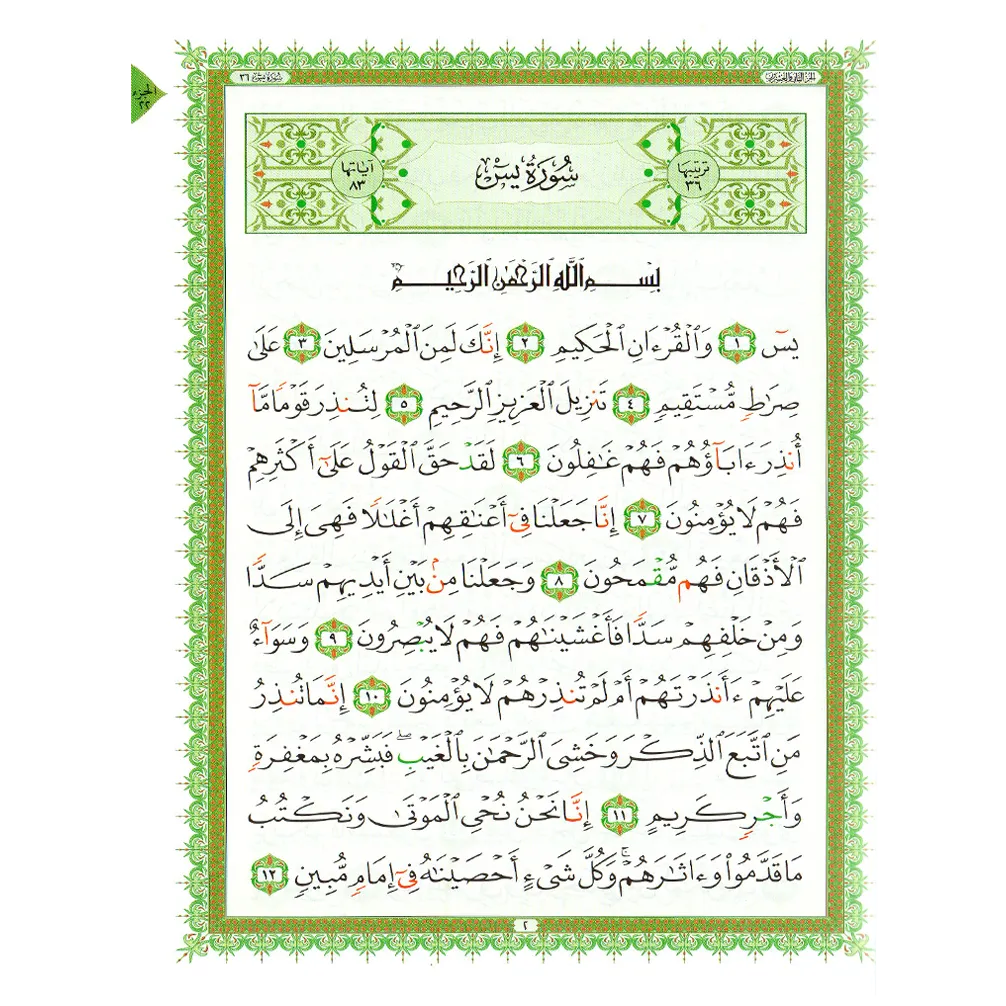 الجزء الثاني والعشرون
سورة يس ٣٦
الجزء
٢٢
ترتيبها
٣٦
سُورَةُ يسٓ
آياتها
٨٣
بِسْمِ ٱللَّهِ ٱلرَّحْمَٰنِ ٱلرَّحِيمِ
يسٓ ١ وَٱلْقُرْءَانِ ٱلْحَكِيمِ ٢ إِنَّكَ لَمِنَ ٱلْمُرْسَلِينَ ٣ عَلَىٰ
صِرَٰطٍ مُّسْتَقِيمٍ ٤ تَنزِيلَ ٱلْعَزِيزِ ٱلرَّحِيمِ ٥ لِتُنذِرَ قَوْمًا مَّآ
أُنذِرَ ءَابَآؤُهُمْ فَهُمْ غَٰفِلُونَ ٦ لَقَدْ حَقَّ ٱلْقَوْلُ عَلَىٰٓ أَكْثَرِهِمْ
فَهُمْ لَا يُؤْمِنُونَ ٧ إِنَّا جَعَلْنَا فِىٓ أَعْنَٰقِهِمْ أَغْلَٰلًا فَهِىَ إِلَى
ٱلْأَذْقَانِ فَهُم مُّقْمَحُونَ ٨ وَجَعَلْنَا مِنۢ بَيْنِ أَيْدِيهِمْ سَدًّا
وَمِنْ خَلْفِهِمْ سَدًّا فَأَغْشَيْنَٰهُمْ فَهُمْ لَا يُبْصِرُونَ ٩ وَسَوَآءٌ
عَلَيْهِمْ ءَأَنذَرْتَهُمْ أَمْ لَمْ تُنذِرْهُمْ لَا يُؤْمِنُونَ ١٠ إِنَّمَا تُنذِرُ
مَنِ ٱتَّبَعَ ٱلذِّكْرَ وَخَشِىَ ٱلرَّحْمَٰنَ بِٱلْغَيْبِ ۖ فَبَشِّرْهُ بِمَغْفِرَةٍ
وَأَجْرٍ كَرِيمٍ ١١ إِنَّا نَحْنُ نُحْىِ ٱلْمَوْتَىٰ وَنَكْتُبُ
مَا قَدَّمُوا۟ وَءَاثَٰرَهُمْ ۚ وَكُلَّ شَىْءٍ أَحْصَيْنَٰهُ فِىٓ إِمَامٍ مُّبِينٍ ١٢
٢